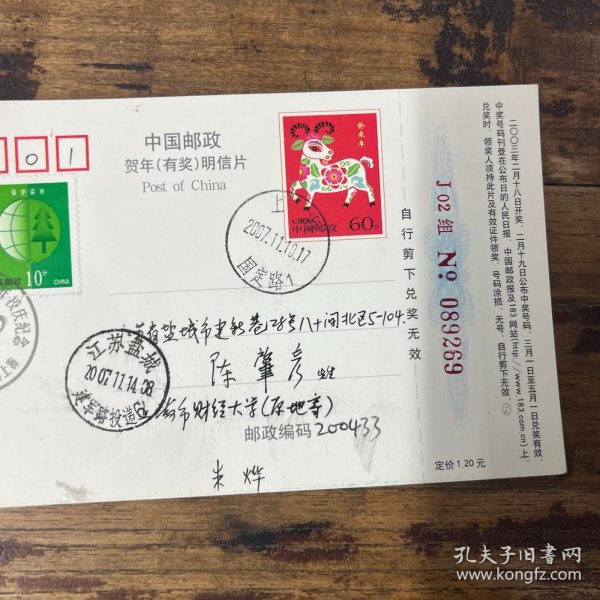 中国邮政
贺年(有奖)明信片
Post of China
0 1
保护森林
10分
CHINA
中国邮政
癸未年
CHINA
中国邮政
60分
上
2007.11.10.17
国定路1
江苏盐城
2007.11.14.08
校庆纪念
省盐城市建新巷128号八十间北区5-104
陈肇彦
海市财经大学(原地亭)
邮政编码 200433
朱烨
自行剪下兑奖无效
J 02 组 No 089269
定价1.20元
二〇〇三年二月十八日开奖,二月十九日公布中奖号码,三月一日至五月一日兑奖有效。
中奖号码刊登在公布日的人民日报、中国邮政报及183网站(http://www.183.com.cn)上,
兑奖时,领奖人须持此片及有效证件领奖,号码涂损、无号、自行剪下无效。
孔夫子旧书网
www.kongfz.com